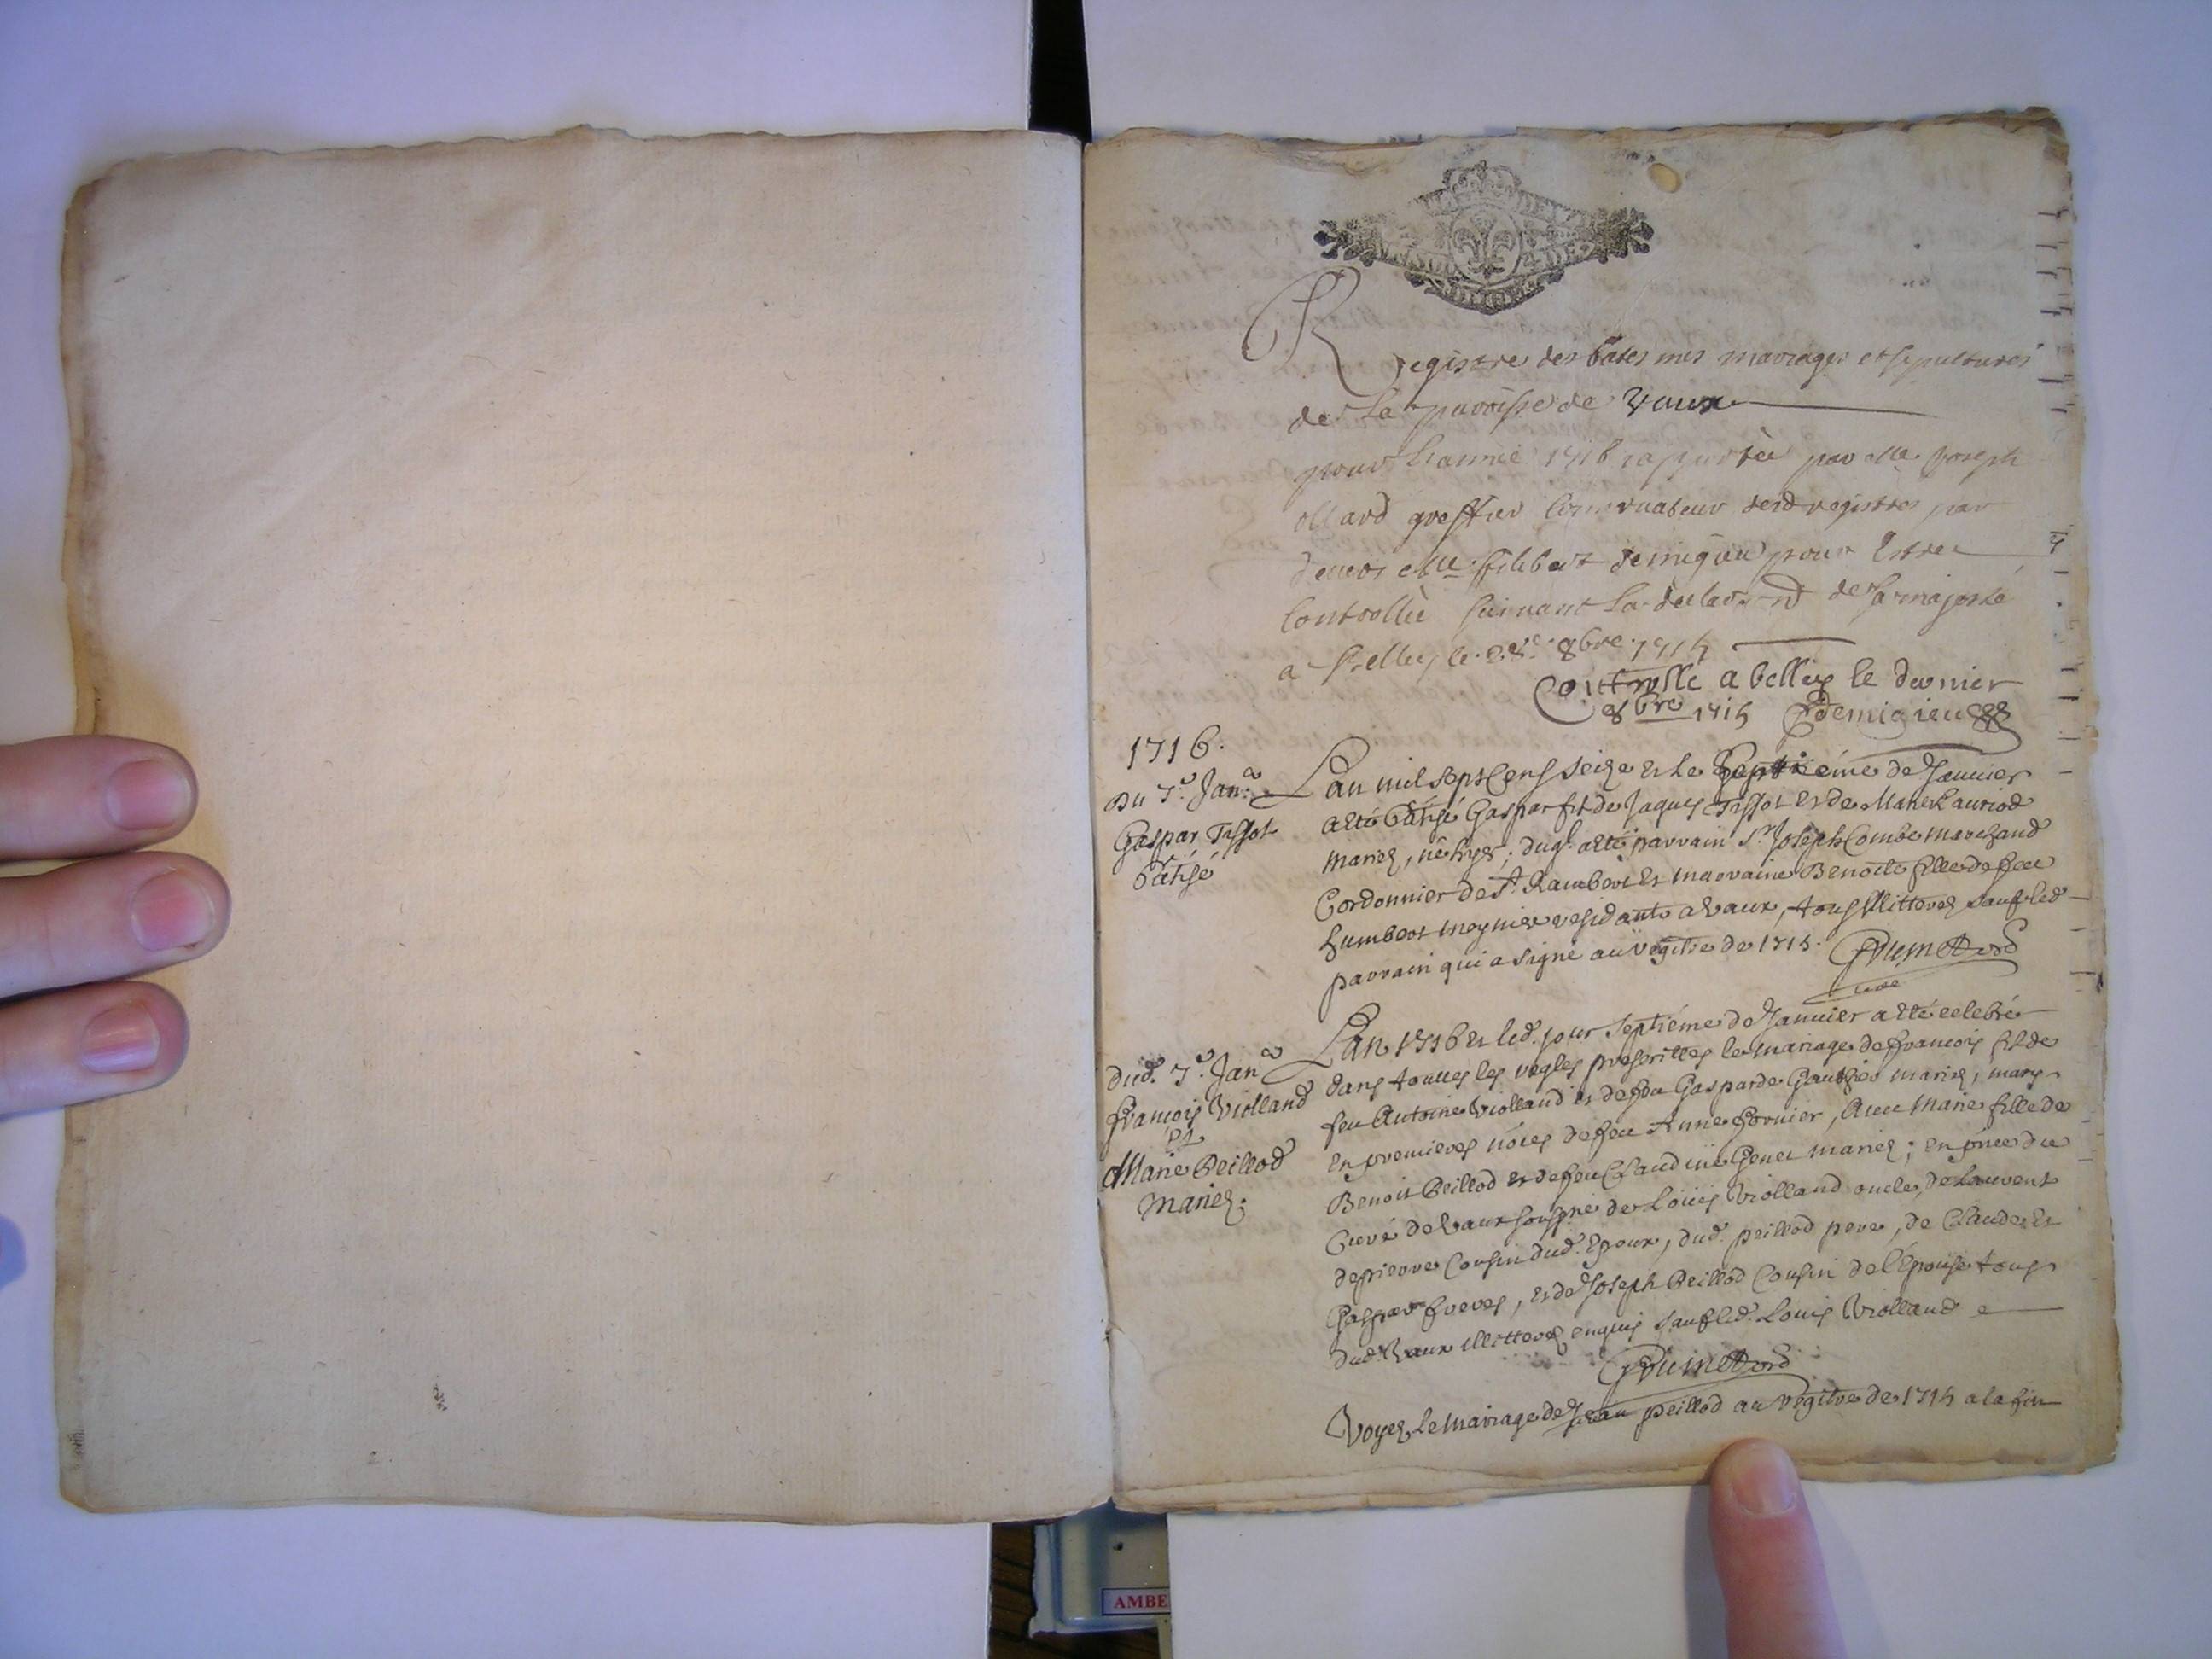 Registre des batesmes mariages et sepultures
de La paroisse de Vaux
pour L'année 1716 raportée par Me Joseph
ollard greffier Conservateur desd registres par
devers Me filibert demigieu pour Estre
Controllée suivant La declar.on de Sa majesté
a Belley le 8bre 1715
Controllé a belley le dernier
8bre 1715 Demigieu
1716.
Du 7.e Jan.er
Gaspar Tissot
batisé
L'an mil sept Cens seize et le Septiéme de Janvier
a eté batisé Gaspar fils de Jaques Tissot et de Marie Lauriod
mariez, né hyer; duql. a eté parrain Sr. Joseph Combe marchand
Cordonnier de St. Rambert et marraine Benoite fille de feu
humbert moynier residante a Vaux, tous illitterez sauf led
parrain qui a signé au régitre de 1715.
curé
Dud. 7.e Jan.er
François Violland
et
Marie Peillod
Mariez.
L'an 1716 et led. jour septiéme de Janvier a eté celebré
dans toutes les regles prescrittes le mariage de François fils de
feu Antoine Violland et de feu Gasparde Gauthier mariez, mary
en premieres nóces de feu Anne fornier, Avec Marie fille de
Benoit Peillod et de feu Claudine Genet mariez; en pnce du
Curé de Vaux soussné de Loüis Violland oncle, de Laurent
de pierre Cousin dud. Epoux, dud. peillod pere, de Claude et
Gaspar freres, et de Joseph Peillod Cousin de l'Epouse tous
dud. Vaux illitterez enquis sauf led. Louis Violland
Voyez Le mariage de Jean peillod au régitre de 1715 a la fin
AMBE